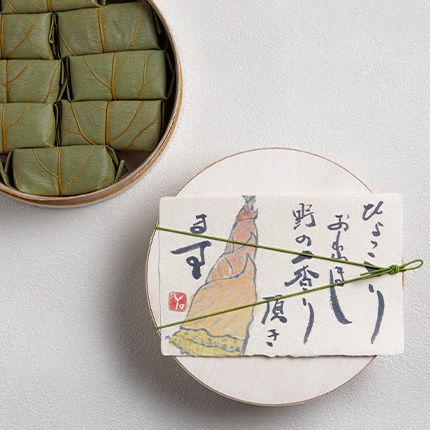 ひょっこり
お出まし
野の香り
頂き
ます